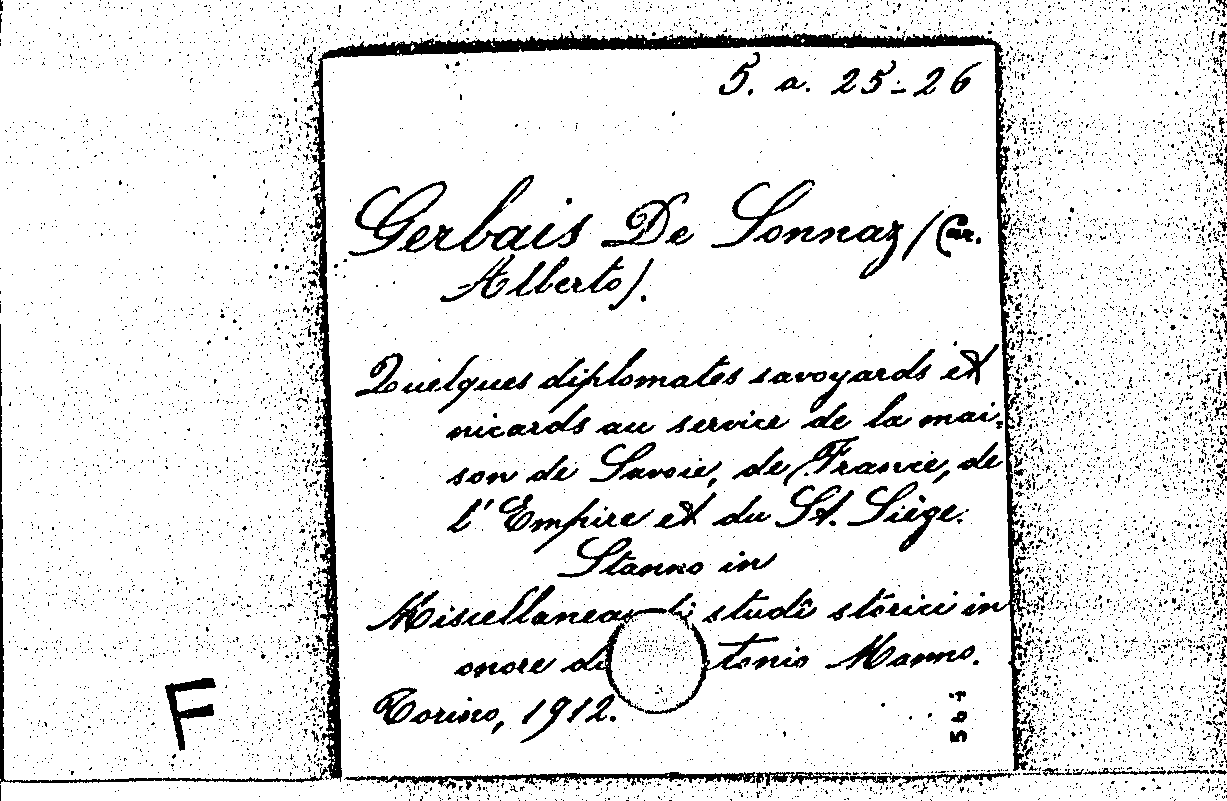 5. a. 25-26
Gerbais De Sonnaz (Car.
Alberto).
Quelques diplomates savoyards et
nicards au service de la mai-
son de Savoie, de France, de
l'Empire et du St. Siège.
Stanno in
Miscellanea di studî storici in
onore di tonio Manno.
Torino, 1912.
F